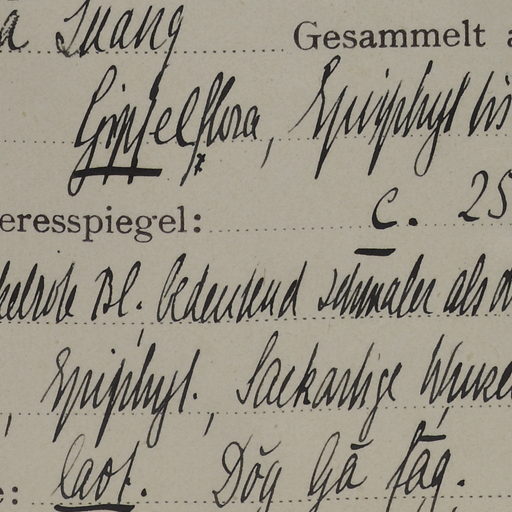 a Luang Gesammelt a
Gipfelflora, Epiphyt bis
eresspiegel: c. 25
kelrote Bl. bedeutend schmaler als d
, Epiphyt., Sackartige Wurzel
e: laot. Dŏg Gā făg.